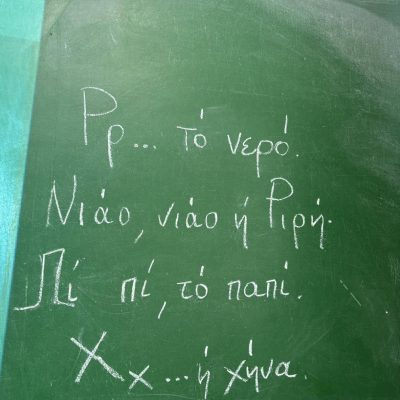 Ρρ... τό νερό.
Νιάο, νιάο ή Ριρή.
Πί πί, τό παπί.
Χχ...ή χήνα.